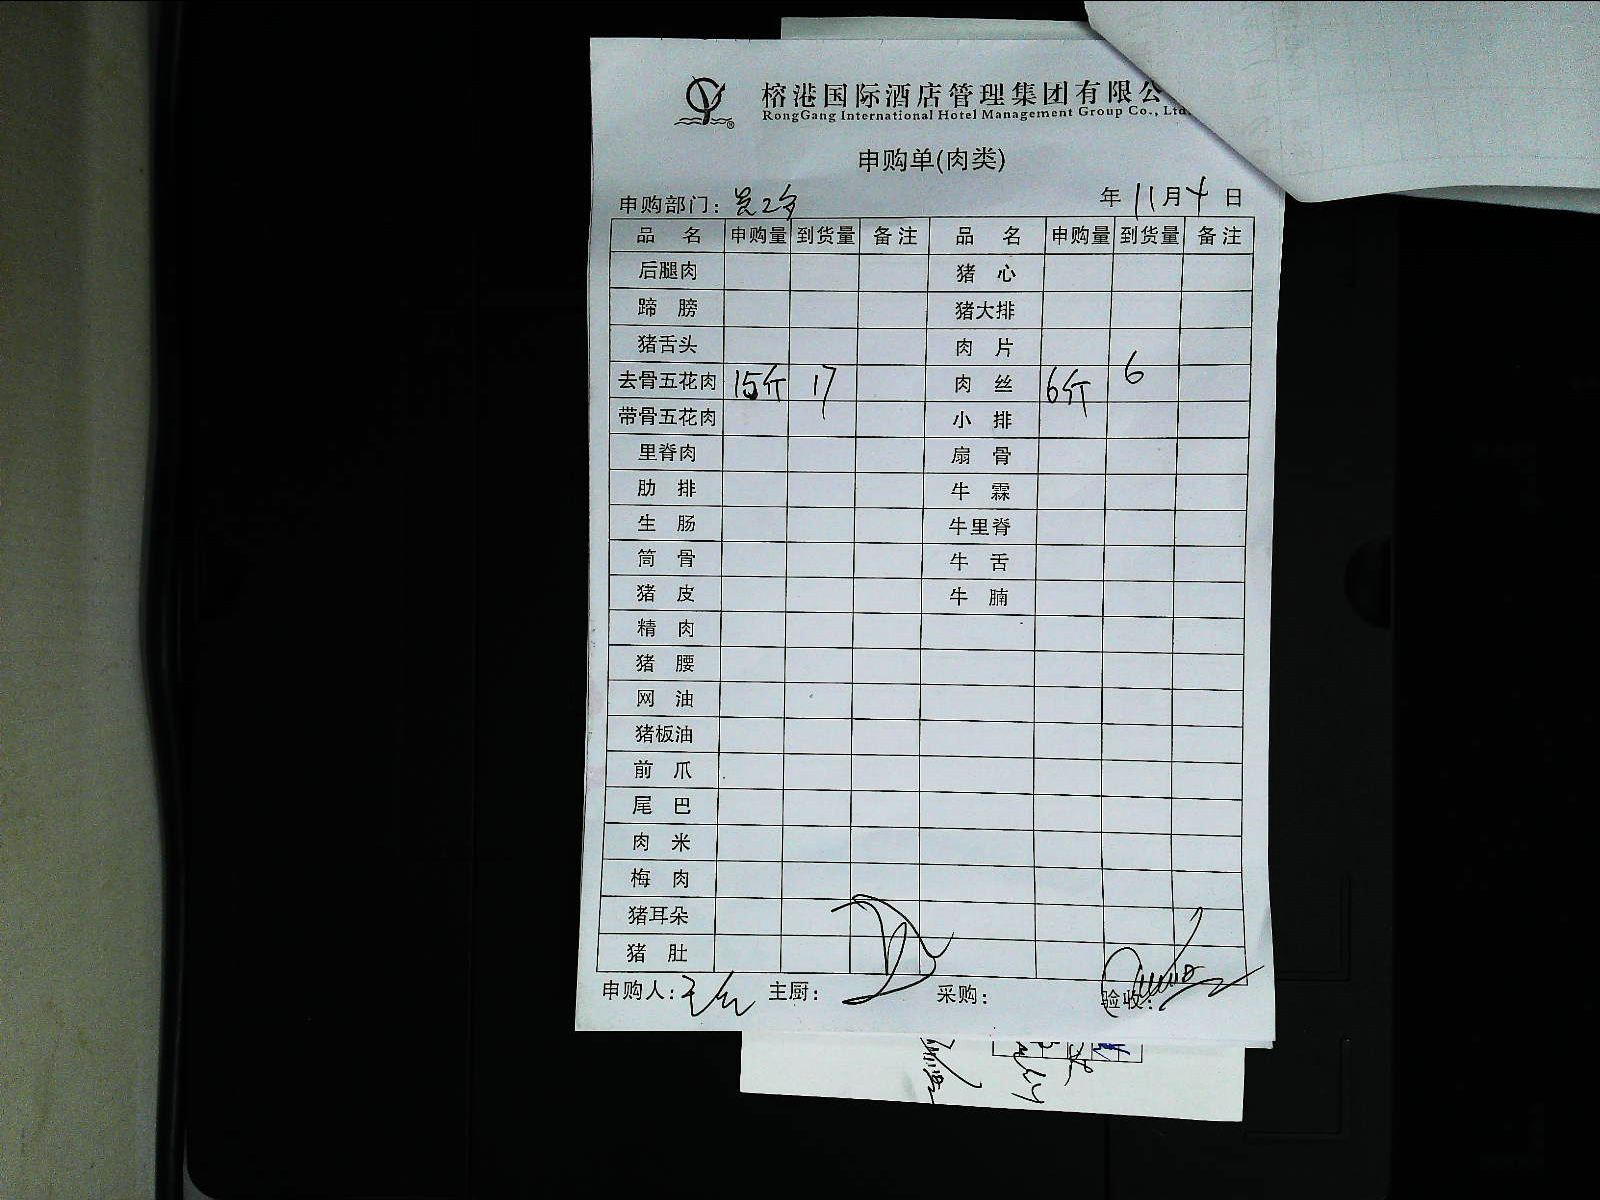 榕港国际酒店管理集团有限公
RongGang International Hotel Management Group Co., Ltd.
申购单(肉类)
申购部门： 年 11月4日
品 名 申购量 到货量 备注 品 名 申购量 到货量 备注
后腿肉 猪 心
蹄 膀 猪大排
猪舌头 肉 片
去骨五花肉 15斤 17 肉 丝 6斤 6
带骨五花肉 小 排
里脊肉 扇 骨
肋 排 牛 霖
生 肠 牛里脊
筒 骨 牛 舌
猪 皮 牛 腩
精 肉
猪 腰
网 油
猪板油
前 爪
尾 巴
肉 米
梅 肉
猪耳朵
猪 肚
申购人： 主厨： 采购： 验收：